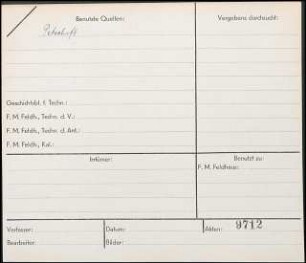 Benutzte Quellen:
Vergebens durchsucht:
Geschichtsbl. f. Techn.:
F. M. Feldh., Techn. d. V.:
F. M. Feldh., Techn. d. Ant.:
F. M. Feldh., Kal.:
Irrtümer:
Benutzt zu:
F. M. Feldhaus:
Verfasser:
Datum:
Akten: 9712
Bearbeiter:
Bilder: